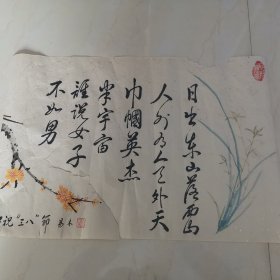 日出东山落西山
人外有人天外天
巾帼英杰
半宇宙
谁说女子
不如男
祝“三八”节